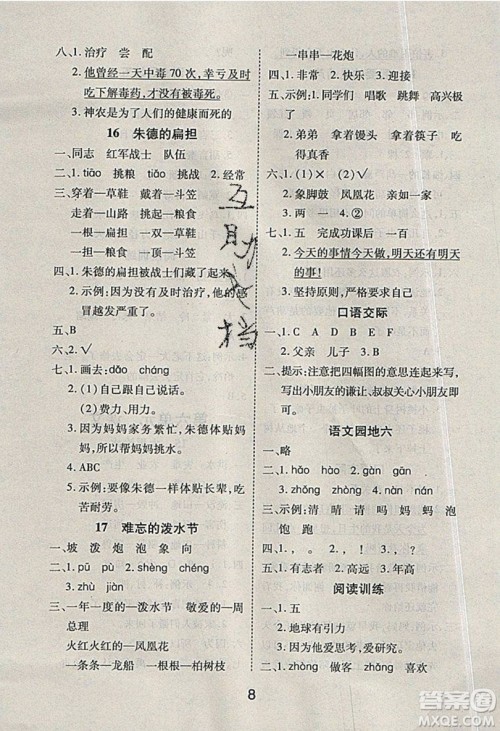 八、1. 治疗 尝 配
2. 他曾经一天中毒 70 次，幸亏及时
吃下解毒药，才没有被毒死。
3. 神农是为了人们的健康而死的
16 朱德的扁担
一、同志 红军战士 队伍
二、1. tiāo 挑粮 tiǎo 挑战 2. 经常
三、穿着—草鞋 戴着—斗笠
走着—山路 挑起—粮食
一担—粮食 一双—草鞋
一根—扁担 一顶—斗笠
四、1. 朱德的扁担被战士们藏了起来。
2. 示例：因为没有及时治疗，他的感
冒越发严重了。
五、B
六、2. √
七、1. 画去：dàn
2. (1) 自己跟自己说话。
(2) 费力，辛苦。
3. 因为妈妈家务繁忙，朱德体贴妈
妈，所以帮妈妈挑水。
4. ABC
5. 示例：要像朱德一样体贴长辈，吃
苦耐劳。
17 难忘的泼水节
一、坡 泼 炮 泡 象 向
二、1. pū pù 2. shèng chéng
3. zhù jiàn
三、一年一度的—泼水节 敬爱的—周
总理
火红火红的—凤凰花
一条条—龙船 一根根—柏树枝
一串串—花炮
四、1. 非常 2. 快乐 3. 迎接
五、1. 示例：同学们 唱歌 跳舞 高兴极
了
2. 示例：弟弟 拿着馒头 拿着筷子 吃
得真香
六、1. (1) × (2) √
2. 象脚鼓 凤凰花 亲如一家
3. 两 一 4. ②
七、1. 五 完成功课后 一百
2. 今天的事情今天做，明天还有明天
的事！
3. 坚持原则，严格要求自己
口语交际
一、1. C A D B E F
2. 父亲 儿子 3. D
二、提示：注意把四幅图的意思连起来写，
写出小朋友的谦让、叔叔关心小朋友
就可以了。
语文园地六
一、略
二、1. hǎo hào 2. gàn gān
3. zhōng zhòng
三、示例：清 晴 请 吗 妈 蚂 泡
饱 跑
四、， 。 ， ！ 。 ？
五、1. 有志者 2. 高远 3. 年高
阅读训练
一、1. 五
2. 地球有引力
3. 示例：因为他爱思考，爱研究。
二、1. zhòng 做客 zhāng 喜欢
8
互助文档
答案圈
MXQE.COM